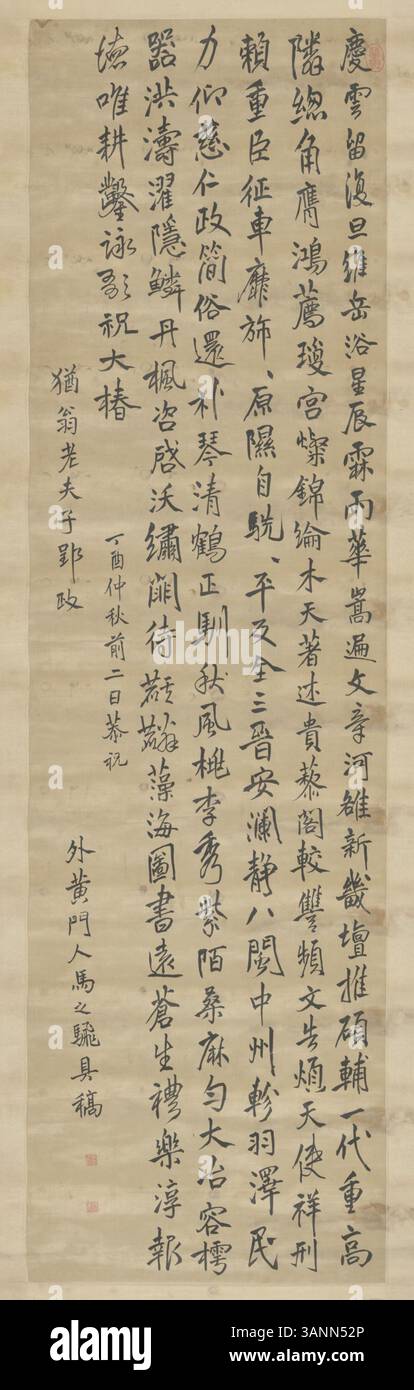 慶雲留復旦維岳浴星辰霖雨華嵩遍文章河雒新畿壇推碩輔一代重高
隣總角膺鴻薦瓊宮燦錦綸木天著述貴藜閣較讐頻文告煩天使祥刑
賴重臣征車靡旆旆原隰自駪駪平反全三晉安瀾靜八閩中州軫羽澤民
力仰慈仁政簡俗還朴琴清鶴正馴秋風桃李秀紫陌桑麻勻大冶容樗
器洪濤濯隱鱗丹楓咨啓沃繡闈待藻海圖書遠蒼生禮樂淳報
德唯耕鑿詠歌祝大椿
猶翁老夫子郢政
丁酉仲秋前二日恭祝
外黃門人馬之驦具稿
alamy
Image ID: 3ANN52P
www.alamy.com